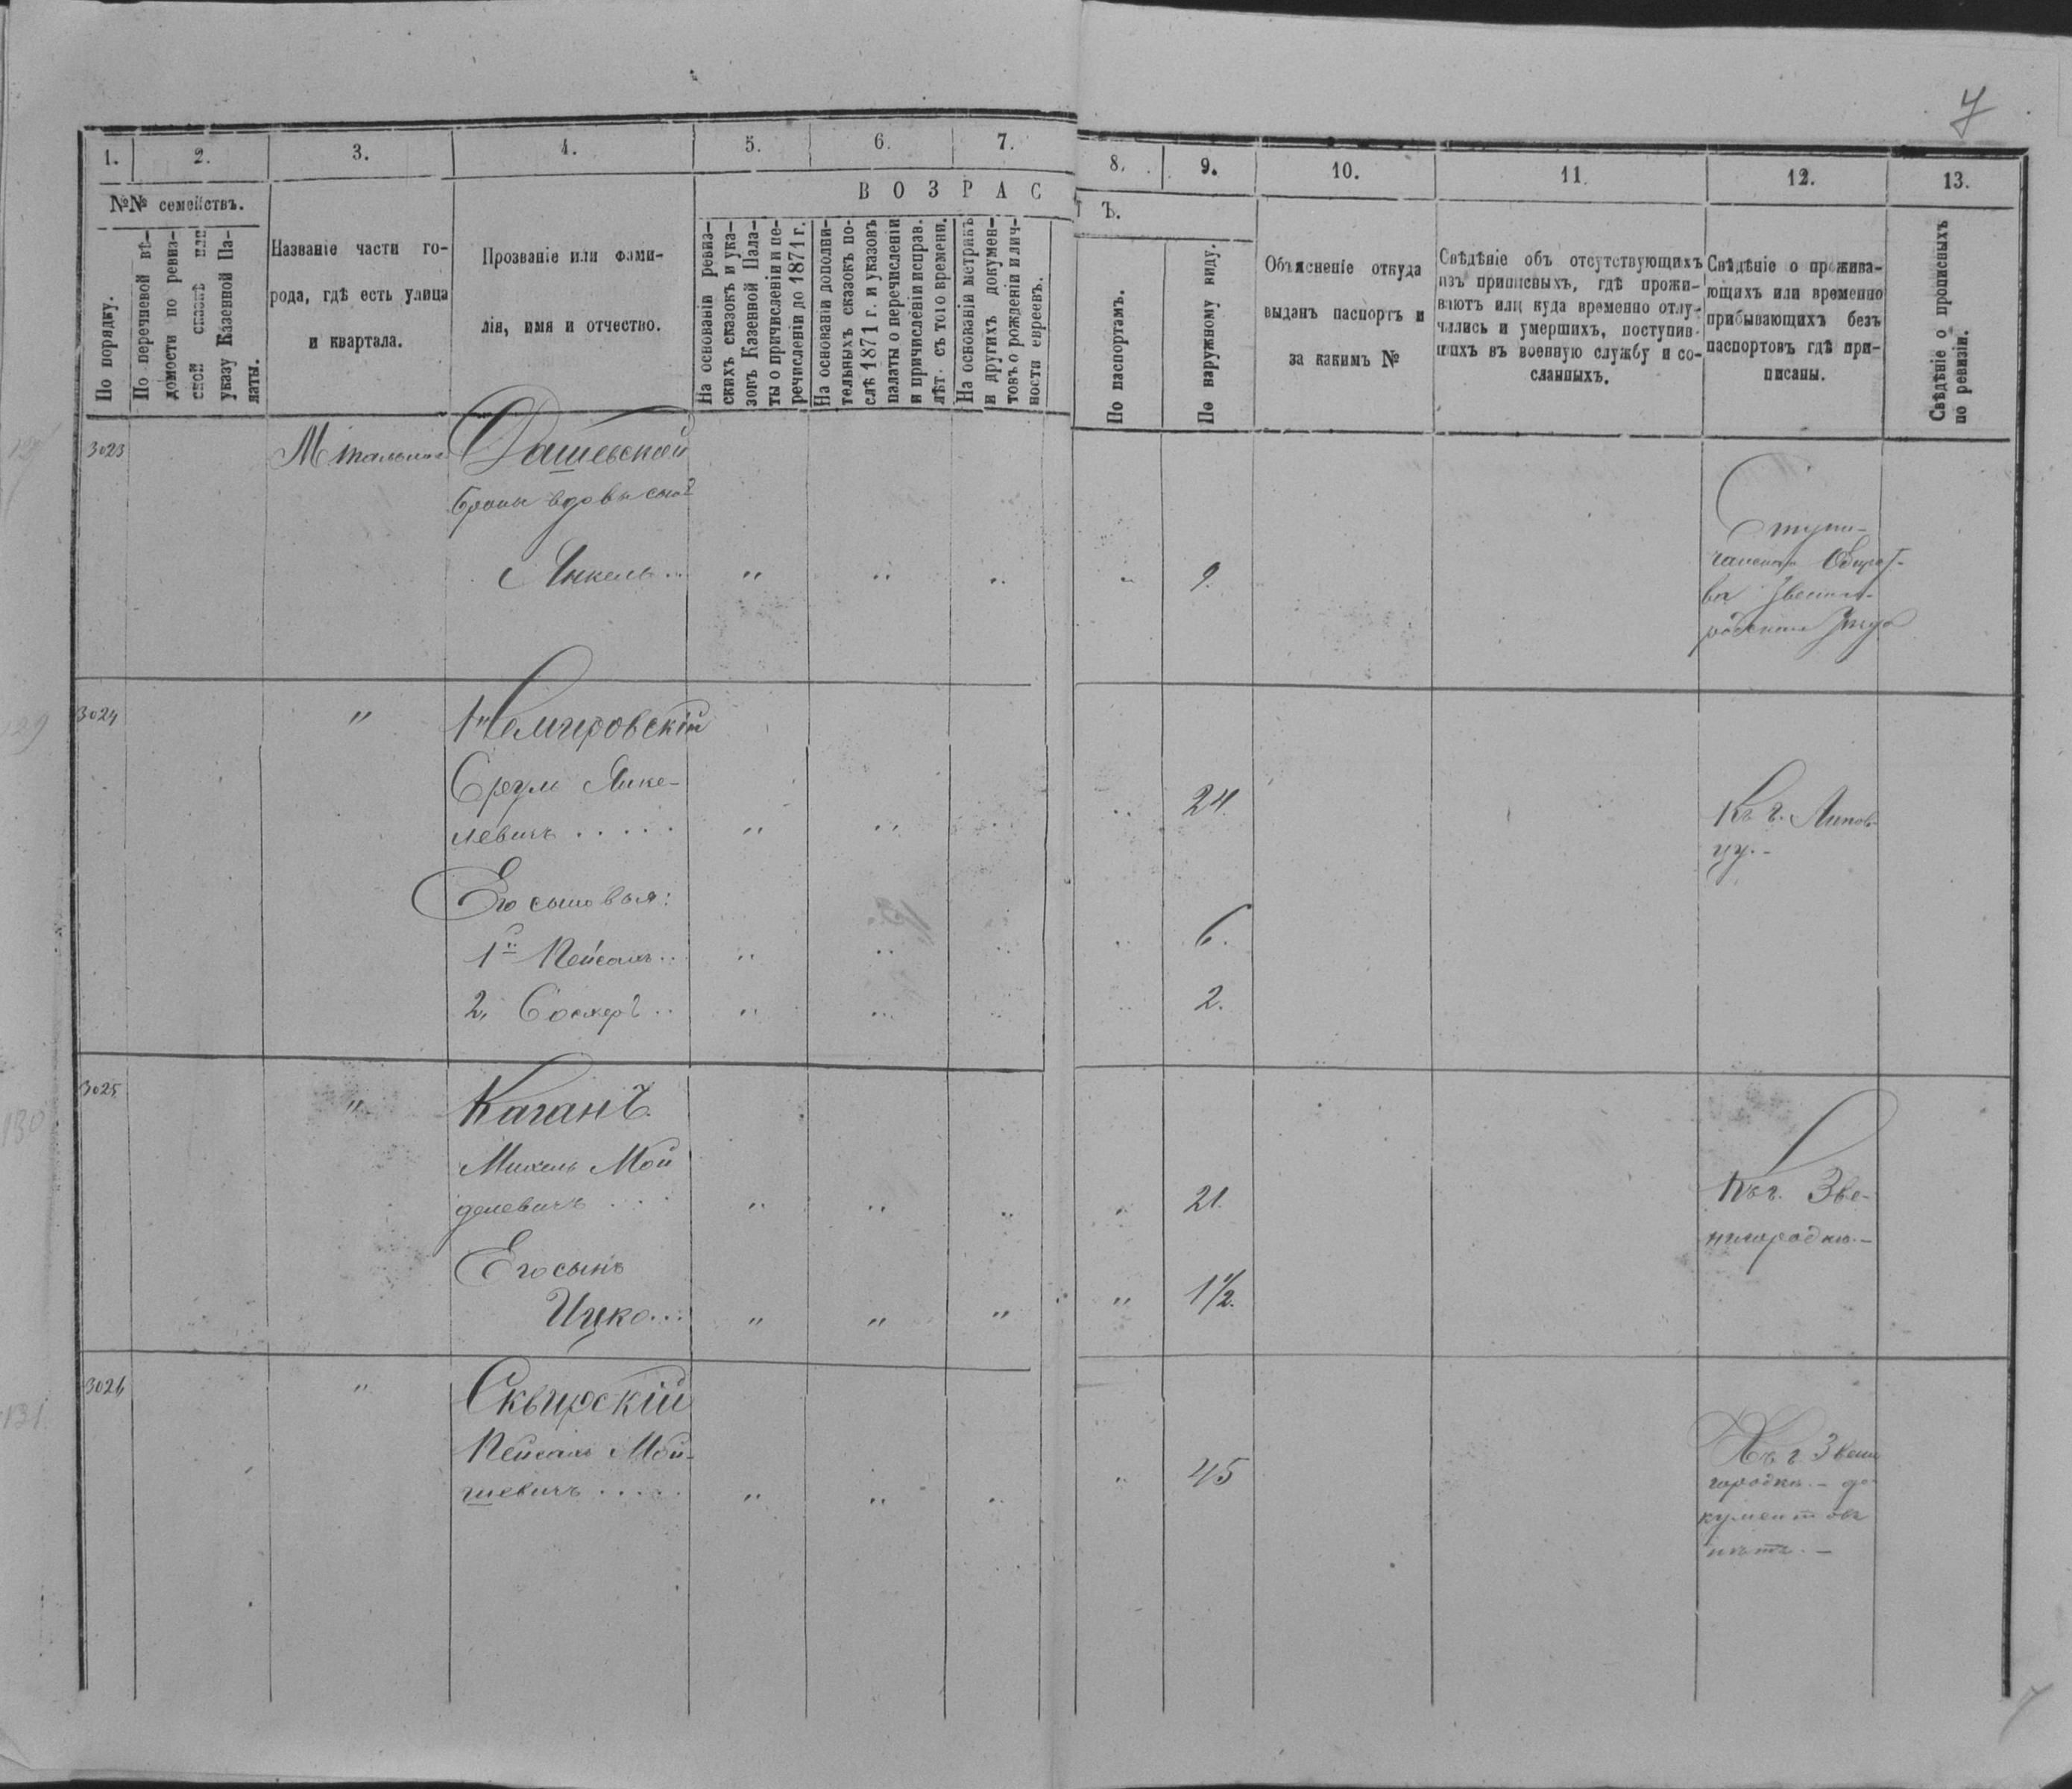 7
1. 2. 3. 4. 5. 6. 7. 8. 9. 10. 11. 12. 13.
№№ семействъ.
По порядку.
По перечневой вѣ-
домости по ревиз-
ской сказкѣ или
указу Казенной Па-
латы.
Названіе части го-
рода, гдѣ есть улица
и квартала.
Прозваніе или фами-
лія, имя и отчество.
ВОЗРАСТЪ.
На основаніи ревиз-
скихъ сказокъ и ука-
зовъ Казенной Пала-
ты о причисленіи и пе-
речисленіи до 1871 г.
На основаніи дополни-
тельныхъ сказокъ по-
слѣ 1871 г. и указовъ
палаты о перечисленіи
и причисленіи исправ.
лѣт. съ того времени.
На основаніи метрикъ
и другихъ докумен-
товъ о рожденіи и лич-
ности евреевъ.
По паспортамъ.
По наружному виду.
Объясненіе откуда
выданъ паспортъ и
за какимъ №
Свѣдѣніе объ отсутствующихъ
изъ приписныхъ, гдѣ прожи-
ваютъ или куда временно отлу-
чились и умершихъ, поступив-
шихъ въ военную службу и со-
сланныхъ.
Свѣдѣніе о прожива-
ющихъ или временно
прибывающихъ безъ
паспортовъ гдѣ при-
писаны.
Свѣдѣніе о прописныхъ
по ревизіи.
3023 М Дашевской
вдовы сынъ
Янкель .. " " " " 9.
129
3024 " Немировскій
Срулъ Янке-
левичъ ..... " " " " 24. Къ г. Липов-
цу.-
Его сыновья:
1й Пейсахъ .. " " " " 6.
2, .. " " " " 2.
130
3025 " Каганъ
Михель Мой
делевичъ ... " " " " 21. Къ г. Зве-
нигородкѣ.-
Его сынъ
Ицко ... " " " " 1 1/2.
131
3026 " Сквирскій
Пейсахъ Мой-
шевичъ ..... " " " " 45 Къ г Звени
городкѣ.- до-
кументовъ
нѣтъ.-